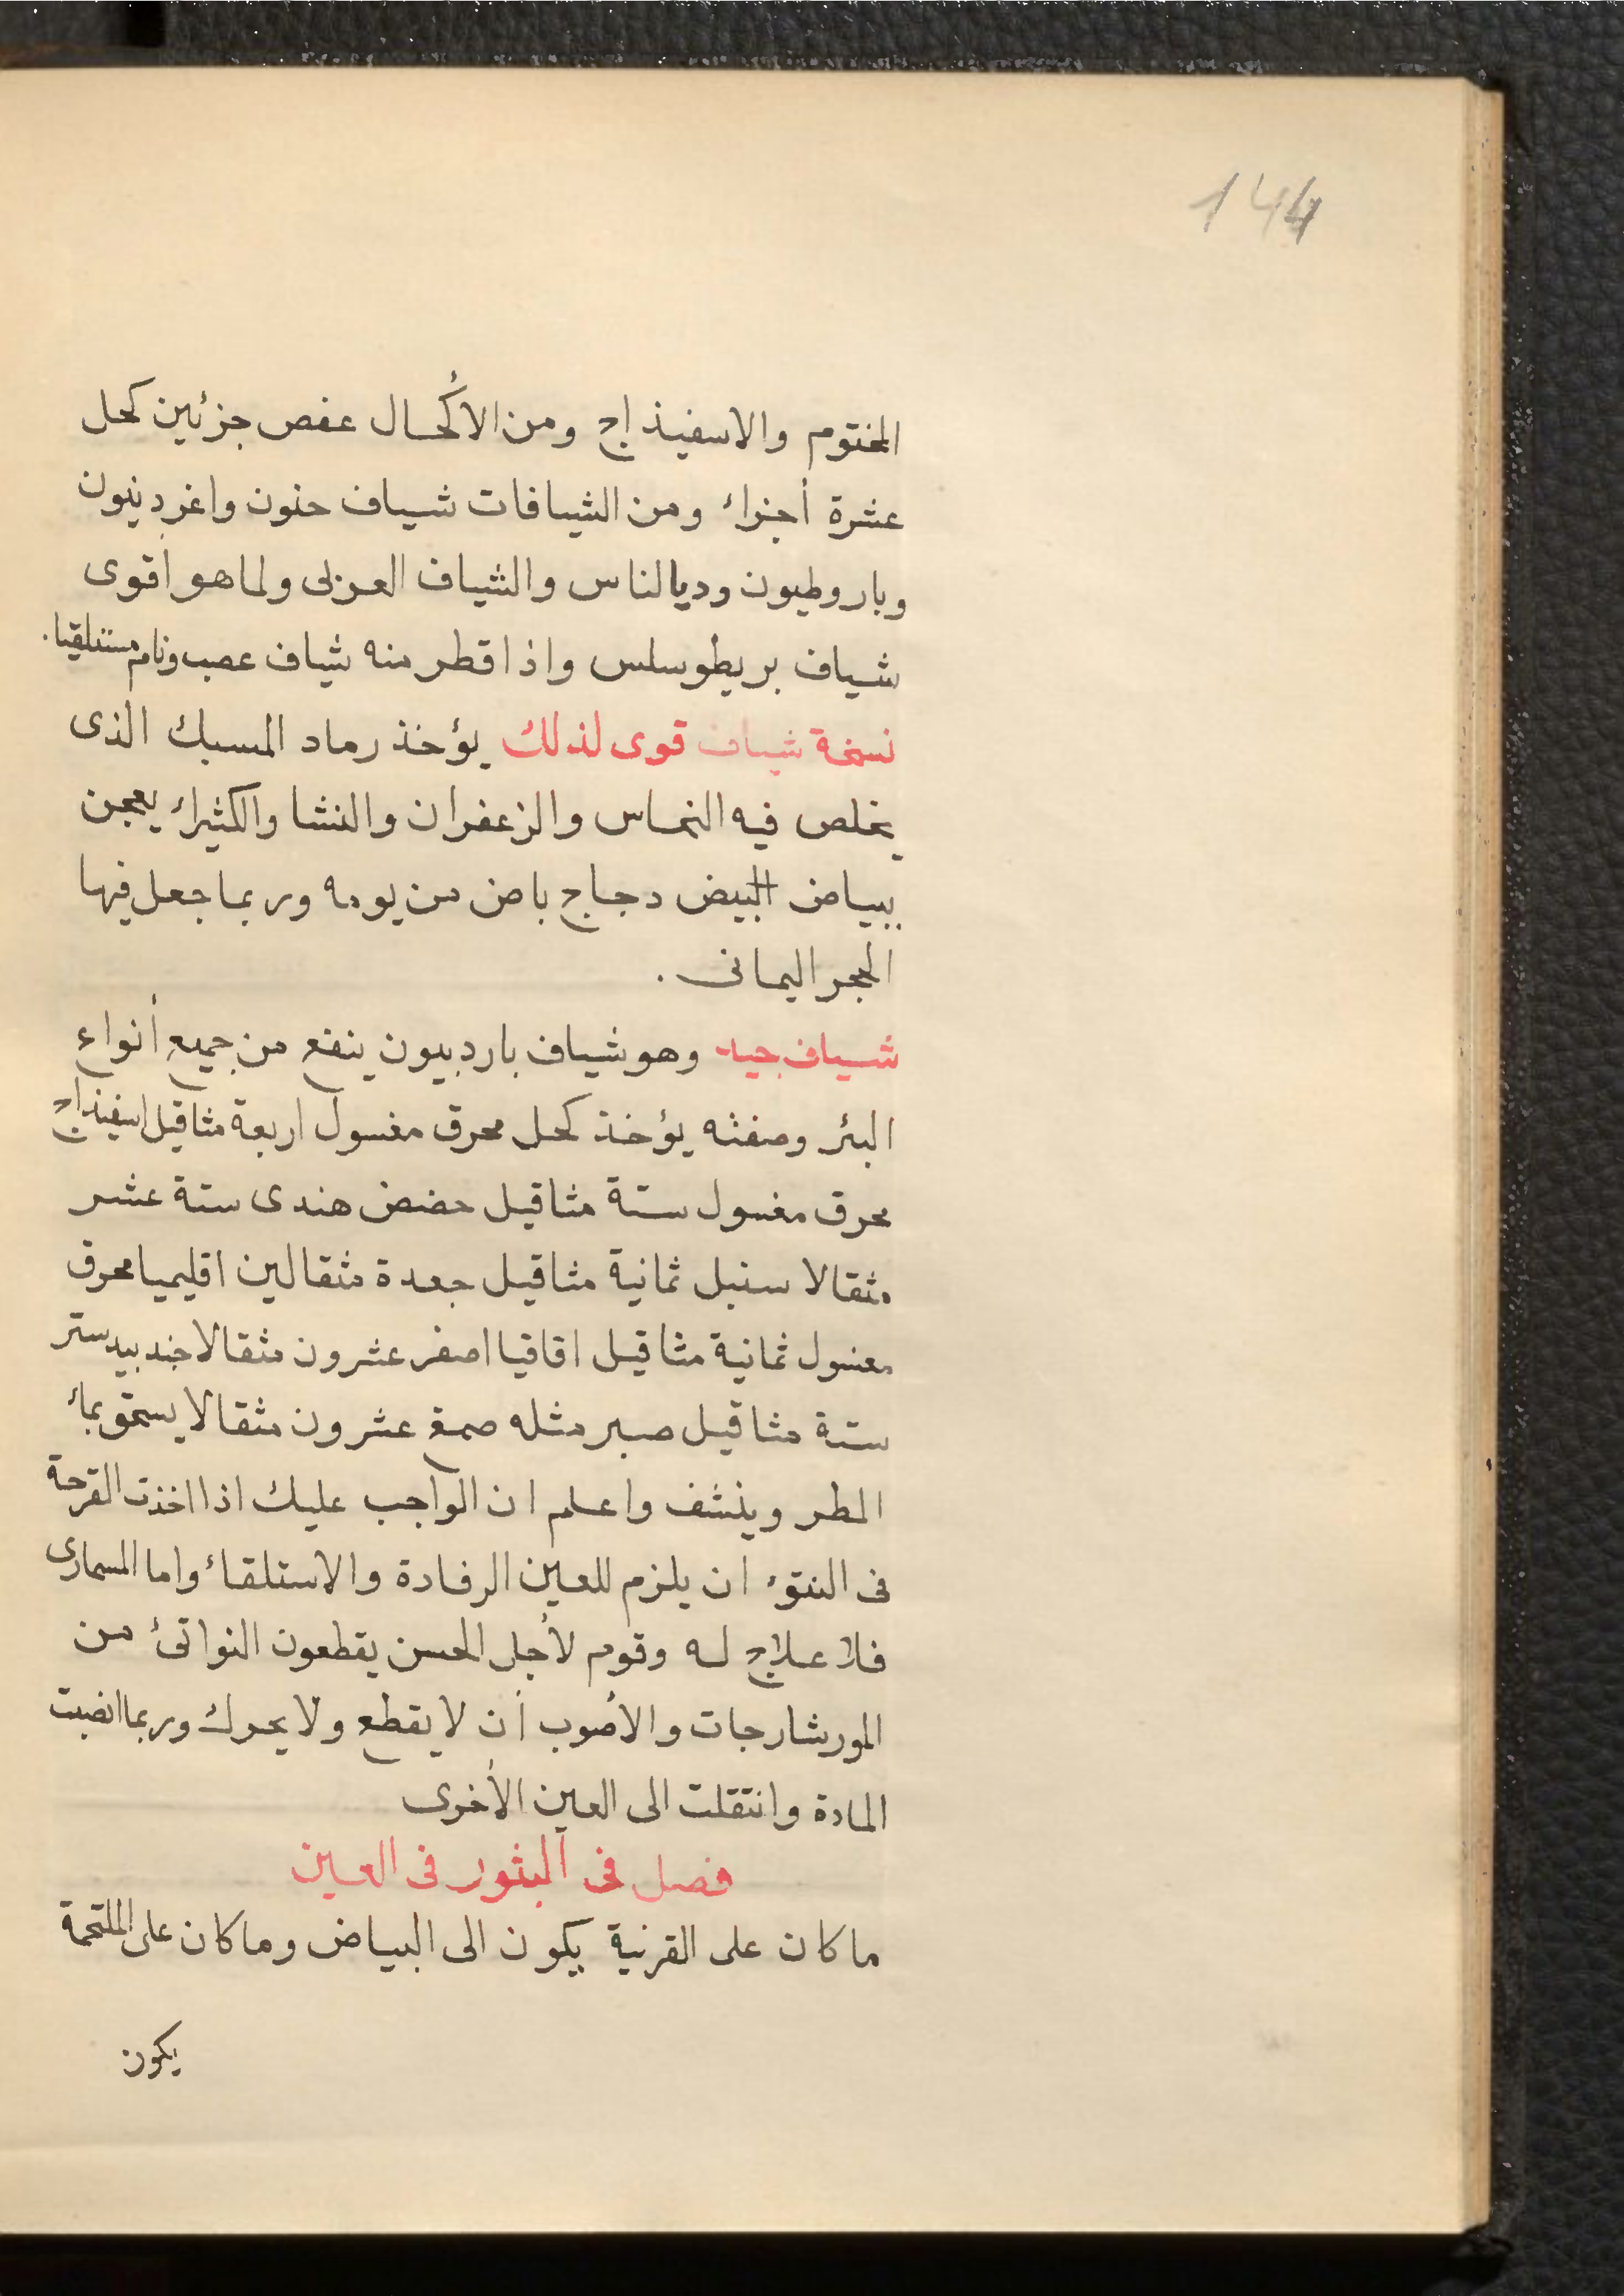 144
المختوم والاسفيذاج ومن الأكحال عفص جزئين كحل
عشرة أجزاء ومن الشيافات شياف حنون واغردينون
وباروطيون ودياالناس والشياف العزلى ولما هو أقوى
شياف بريطوسلس واذا قطر منه شياف عصب ونام مستلقيا.
نسخة شياف قوى لذلك يؤخذ رماد المسبك الذى
يخلص فيه النحاس والزعفران والنشا والكثيراء يعجن
ببياض البيض دجاج باض من يومه وربما جعل فيها
الحجر اليمانى .
شياف جيد وهو شياف باردبيون ينفع من جميع أنواع
البثر وصفته يؤخذ كحل محرق مغسول اربعة مثاقيل اسفيذاج
محرق مغسول ستة مثاقيل حضض هندى ستة عشر
مثقالا سنبل ثمانية مثاقيل جعدة مثقالين اقليميا محرق
مغسول ثمانية مثاقيل اقاقيا اصفر عشرون مثقالا جندبيدستر
ستة مثاقيل صبر مثله صمغ عشرون مثقالا يسحق بماء
المطر وينشف واعلم ان الواجب عليك اذا اخذت القرحة
فى النتوء ان يلزم للعين الرفادة والاستلقاء واما المسمارى
فلا علاج له وقوم لأجل الحسن يقطعون النواتئ من
المورشارجات والأصوب أن لا يقطع ولا يحرك وربما انصبت
المادة وانتقلت الى العين الأخرى
فصل فى البثور فى العين
ما كان على القرنية يكون الى البياض وما كان على الملتحمة
يكون